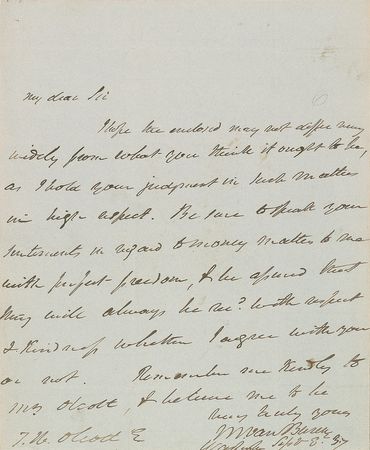 My dear Sir
I hope the enclosed may not differ very
widely from what you think it ought to be,
as I hold your judgment in such matters
in high respect. Be sure to speak your
sentiments in regard to money matters to me
with perfect freedom, & be assured that
they will always be recd. with respect
& kindness whether I agree with you
or not. Remember me kindly to
Mrs Olcott, & believe me to be
very truly yours
M Van Buren
T. W. Olcott E Sept 3. 37